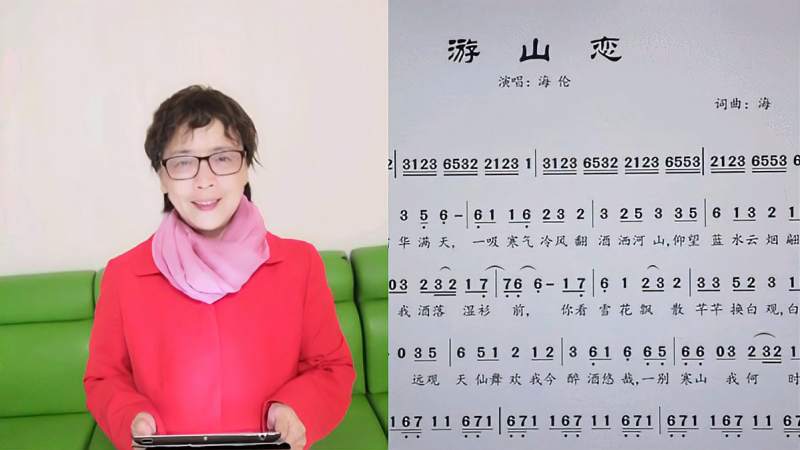 游山恋
演唱：海伦
词曲：海
2 3123 6532 2123 1 3123 6532 2123 6553 2123 6553 6
3 5 6 - 6 1 1 6 2 3 2 3 2 5 3 3 5 6 1 3 2 1
华满天，一吸寒气冷风翻酒洒河山，仰望蓝水云烟翩
0 3 2 32 1 17 76 6 - 1 7 6 5 5 3 5 3 3 2 5 3 2
我洒落湿衫前，你看雪花飘散芊芊换白观，白
0 3 5 6 5 6 1 1 2 3 6 1 6 6 5 6 6 0 3 2 32
远观天仙舞欢我今醉酒悠哉，一别寒山我何时
167 11 671 167 11 671 167 11 671